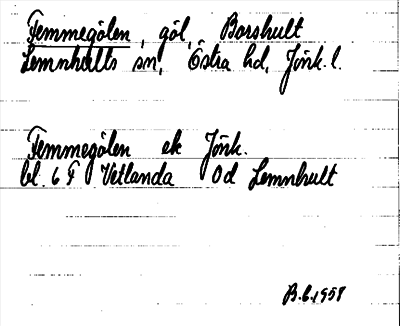 Femmegölen, göl, Borshult
Lemnhults sn, Östra hd, Jönk. l.
Femmegölen ek Jönk.
bl. 6 F Vetlanda Od Lemnhult
B.6.1958